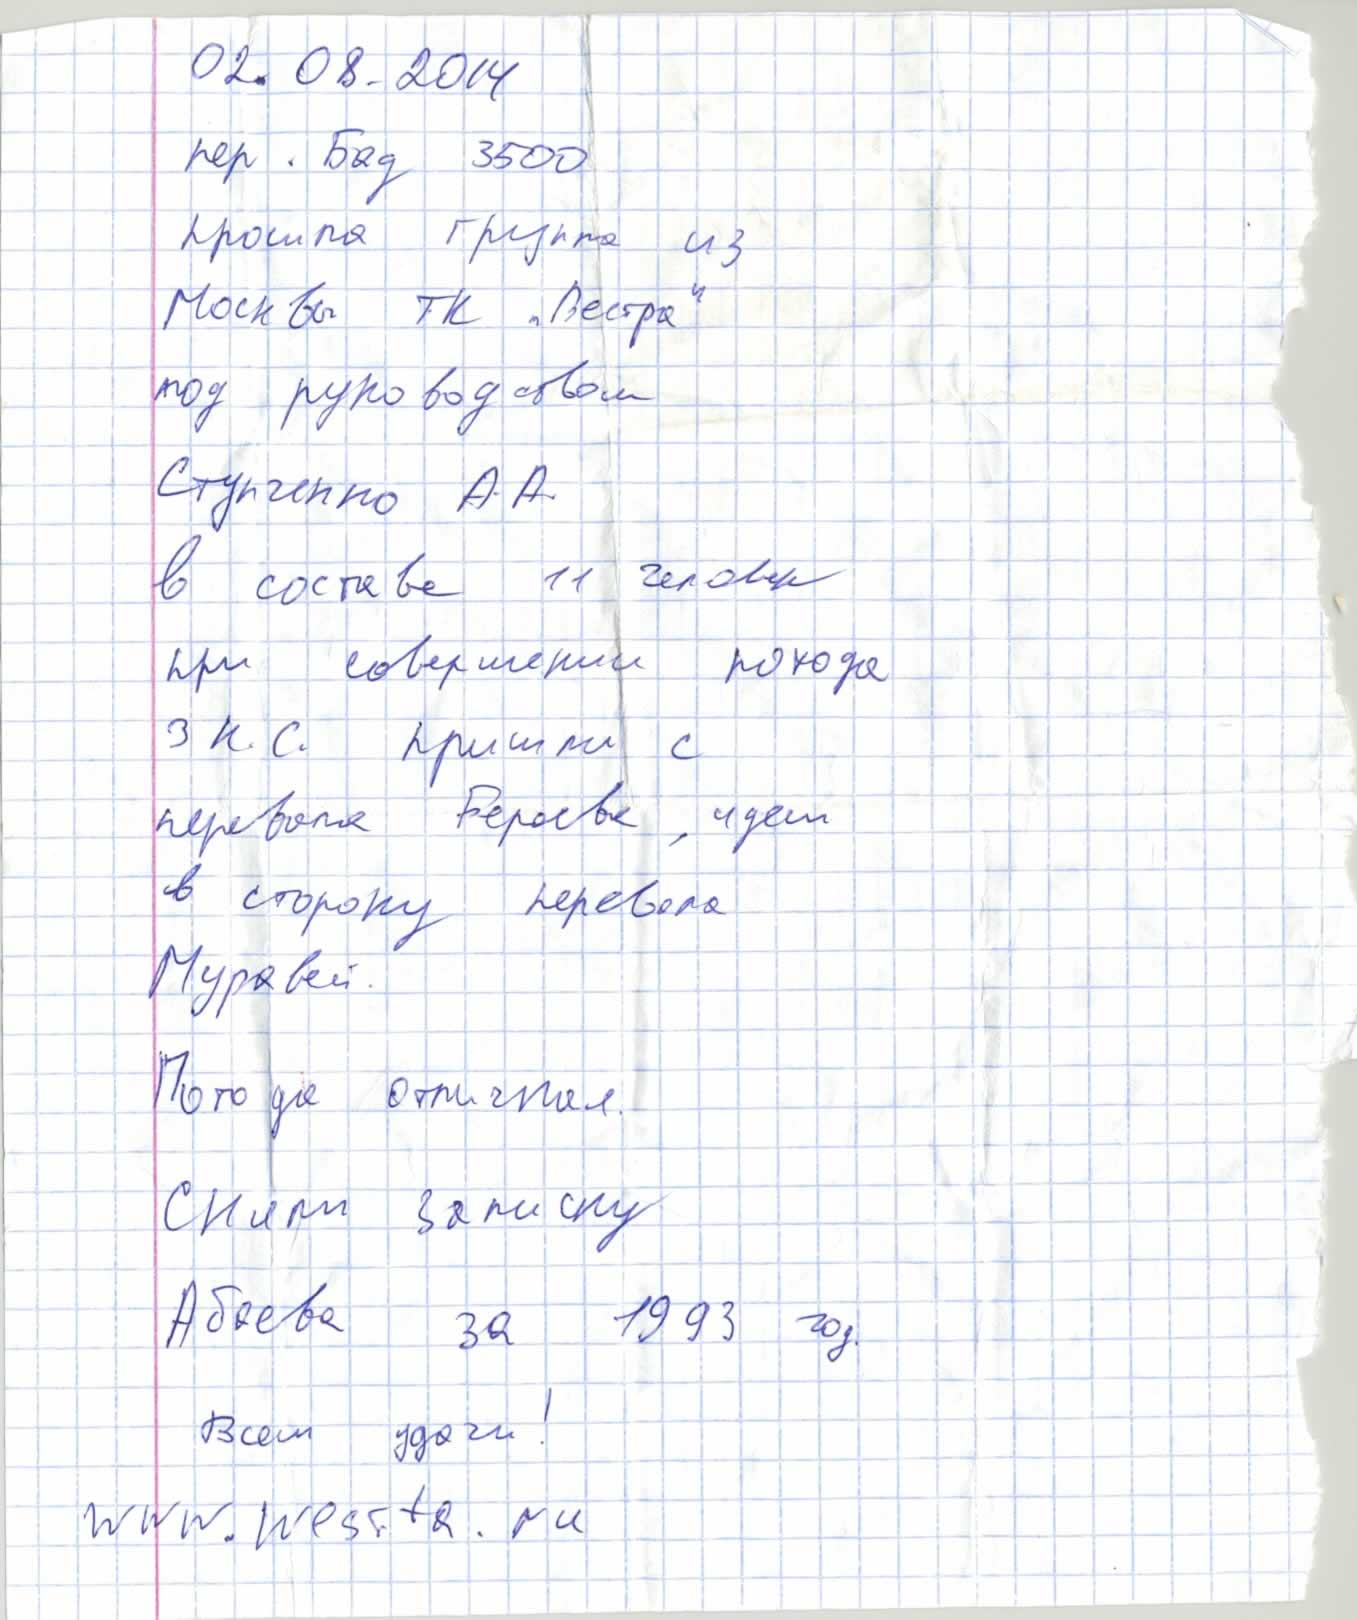 02.08.2014
пер. Бад 3500
прошла группа из
Москвы ТК „Вестра"
под руководством
Ступченко А.А.
в составе 11 человек
при совершении похода
3 к.с. пришли с
перевала Бероева, идем
в сторону перевала
Муравей.
Погода отличная.
Сняли записку
Абаева за 1993 год.
Всем удачи!
www.westra.ru